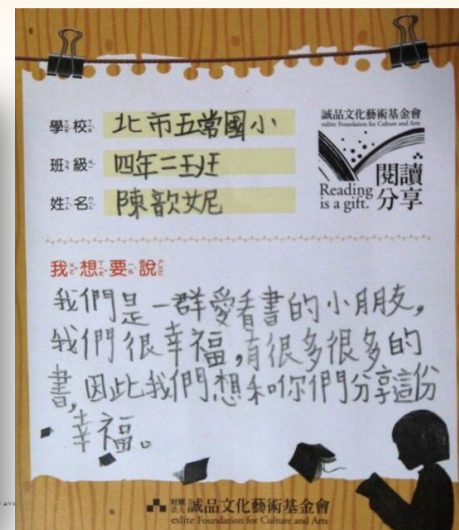 學校 北市五常國小
班級 四年二班
姓名 陳歆妮
誠品文化藝術基金會
eslite Foundation for Culture and Arts
閱讀
分享
Reading
is a gift.
我想要說
我們是一群愛看書的小朋友,
我們很幸福,有很多很多的
書,因此我們想和你們分享這份
幸福。
財團法人 誠品文化藝術基金會
eslite Foundation for Culture and Arts